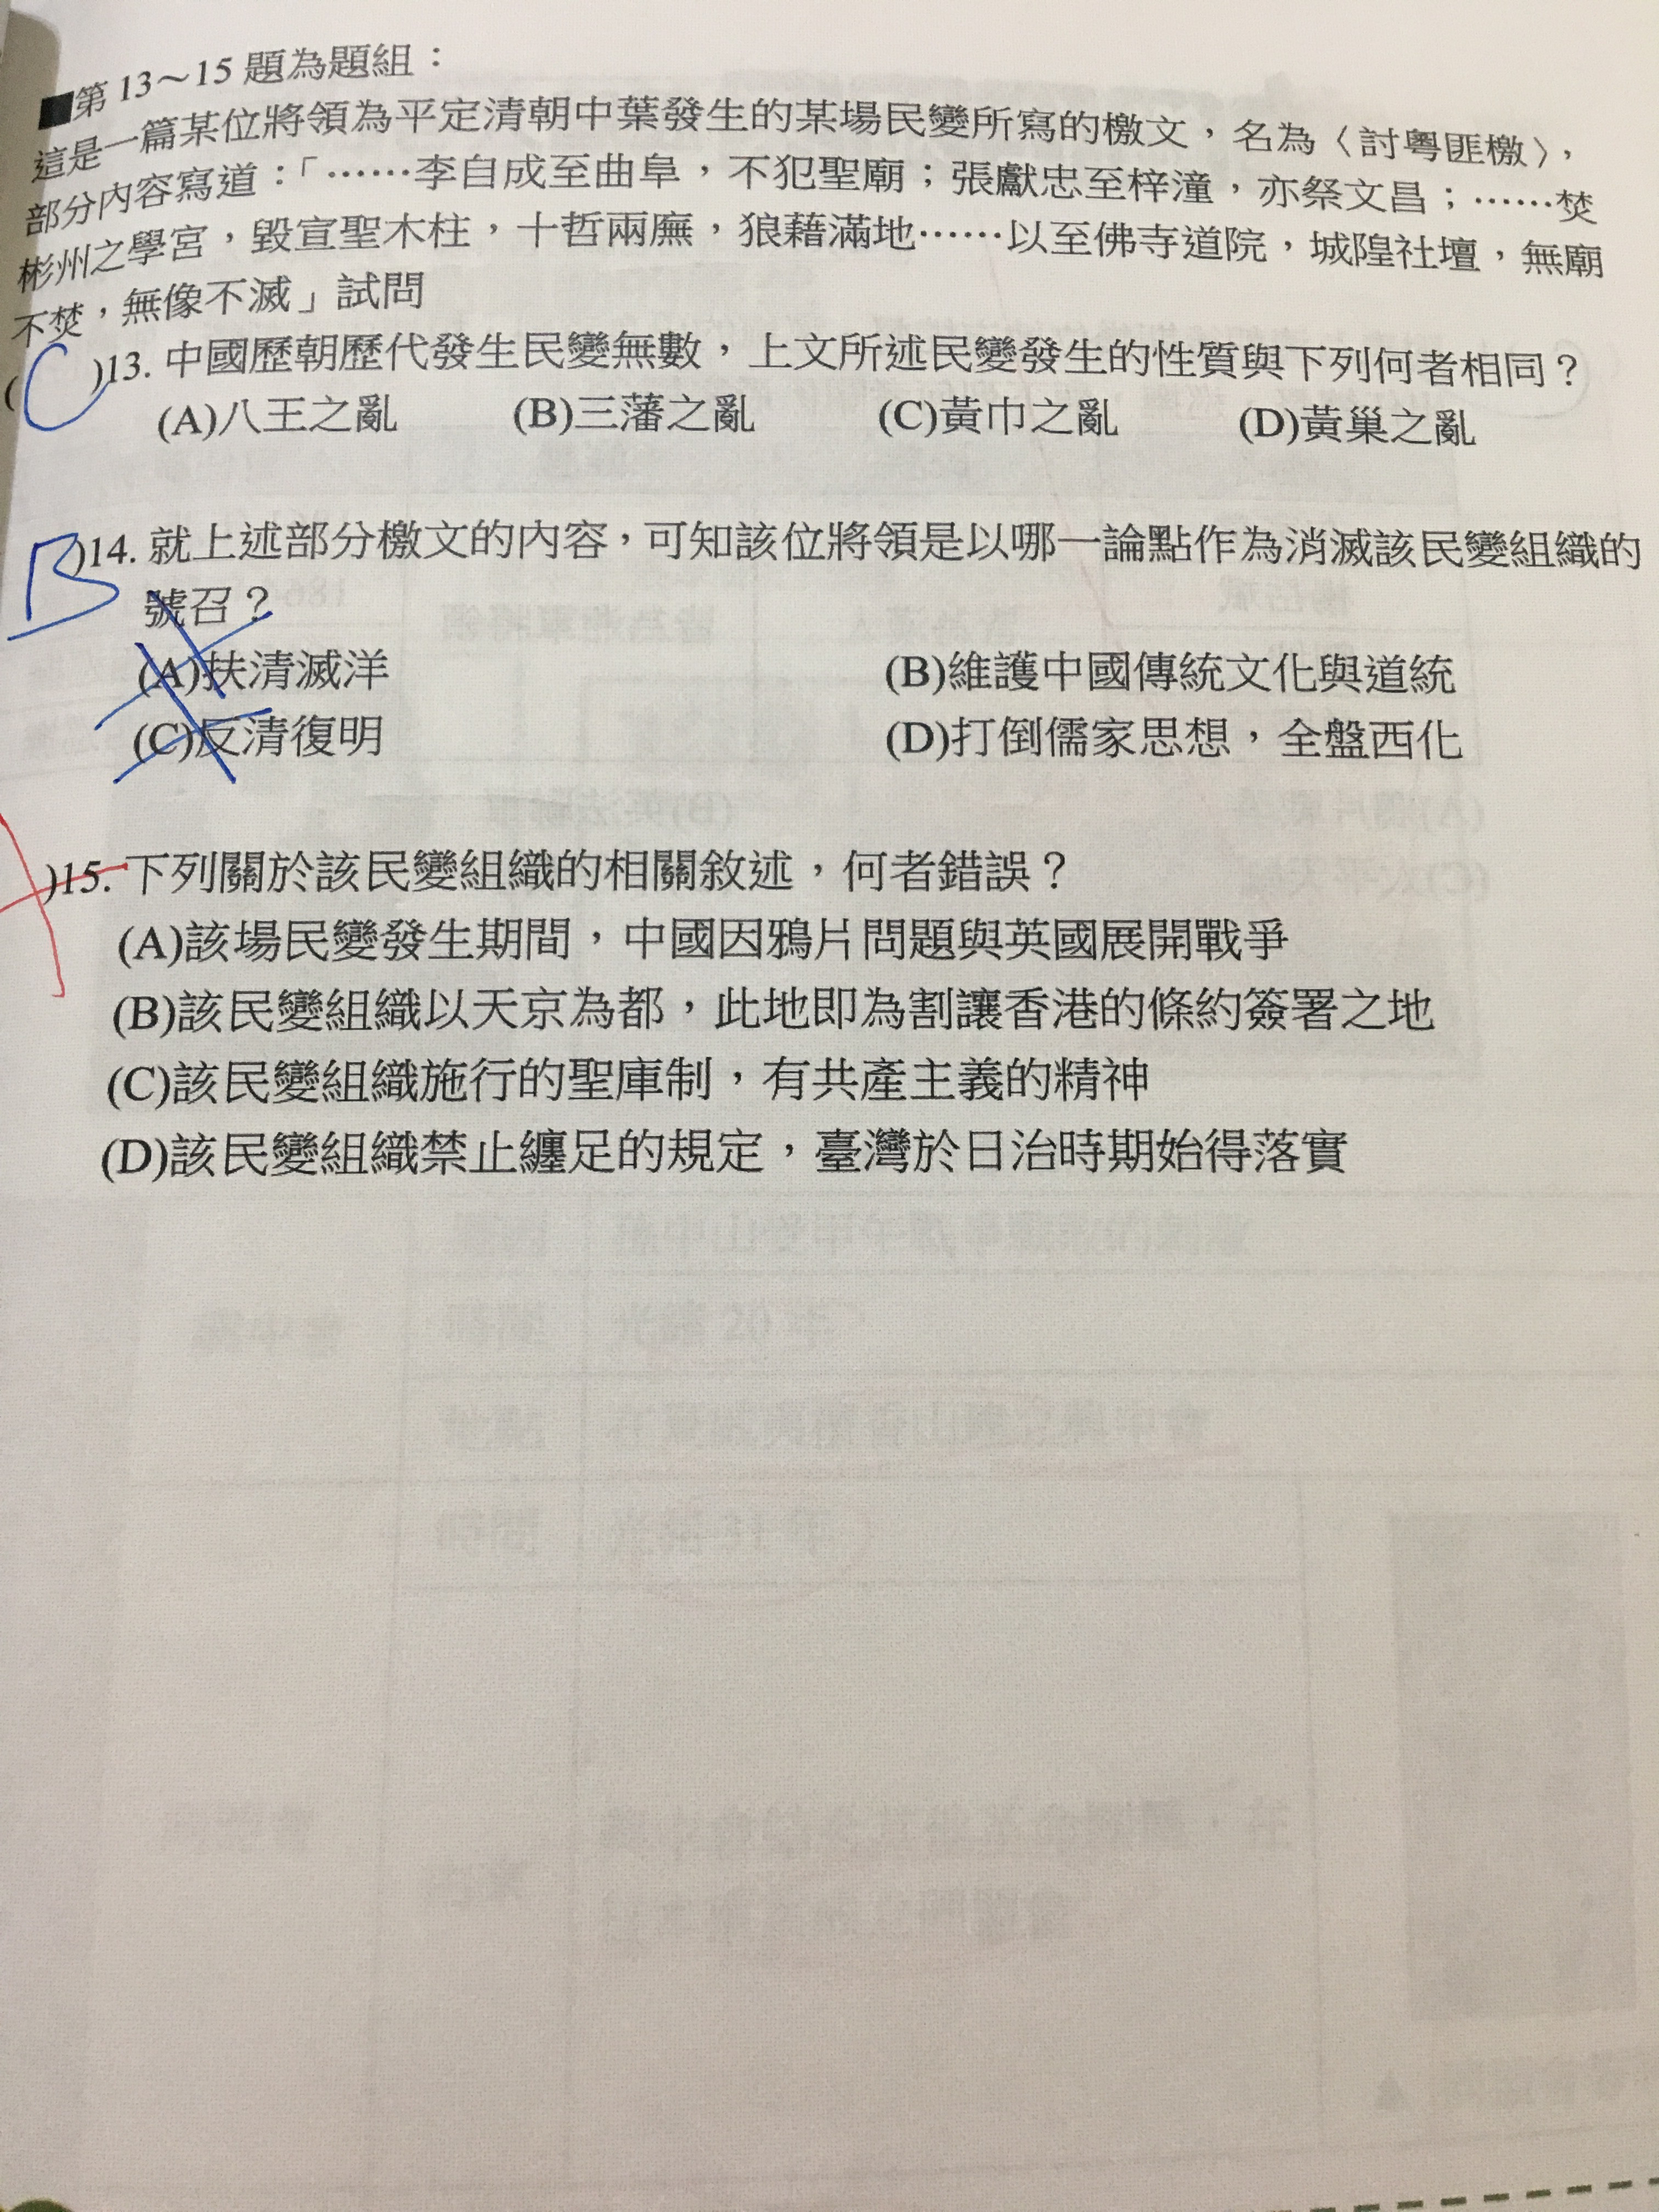 ■第 13～15 題為題組：
這是一篇某位將領為平定清朝中葉發生的某場民變所寫的檄文，名為〈討粵匪檄〉，
部分內容寫道：「……李自成至曲阜，不犯聖廟；張獻忠至梓潼，亦祭文昌；……焚
彬州之學宮，毀宣聖木柱，十哲兩廡，狼藉滿地……以至佛寺道院，城隍社壇，無廟
不焚，無像不滅」試問
( C )13. 中國歷朝歷代發生民變無數，上文所述民變發生的性質與下列何者相同？
(A)八王之亂 (B)三藩之亂 (C)黃巾之亂 (D)黃巢之亂
B )14. 就上述部分檄文的內容，可知該位將領是以哪一論點作為消滅該民變組織的
號召？
(A)扶清滅洋 (B)維護中國傳統文化與道統
(C)反清復明 (D)打倒儒家思想，全盤西化
)15. 下列關於該民變組織的相關敘述，何者錯誤？
(A)該場民變發生期間，中國因鴉片問題與英國展開戰爭
(B)該民變組織以天京為都，此地即為割讓香港的條約簽署之地
(C)該民變組織施行的聖庫制，有共產主義的精神
(D)該民變組織禁止纏足的規定，臺灣於日治時期始得落實